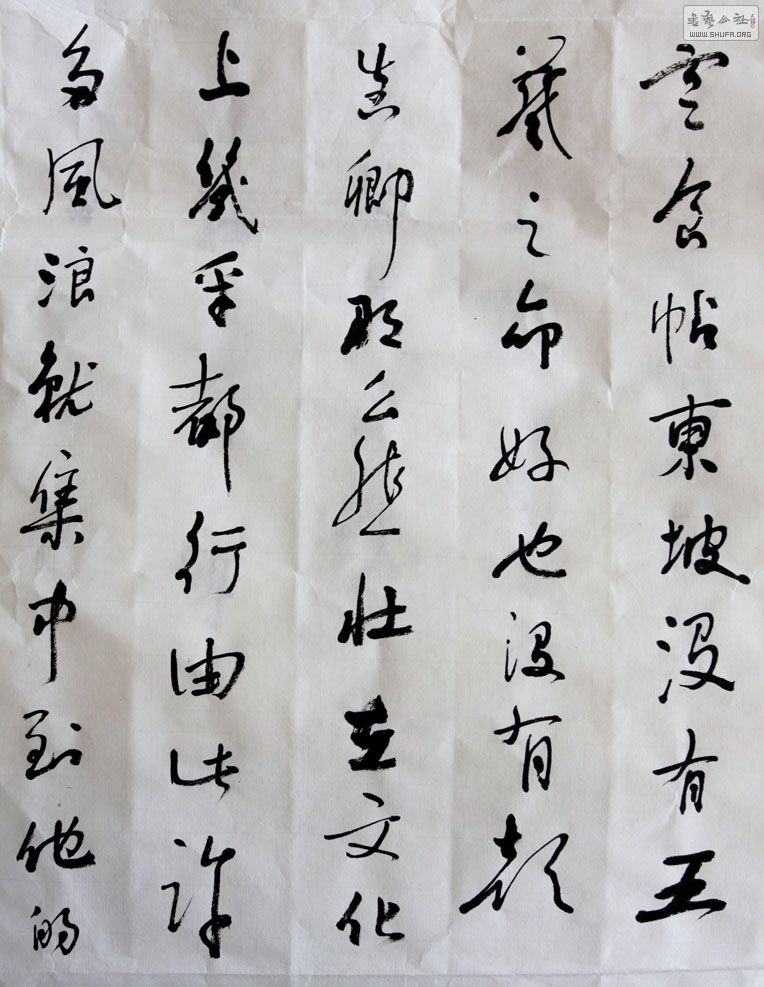 寒食帖東坡没有王
羲之命好也没有顔
真卿那么悲壯在文化
上幾乎都行由此許
多風浪就集中到他的
書藝公社
WWW.SHUFA.ORG